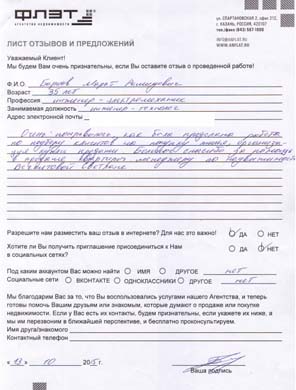 ФЛЭТ
АГЕНТСТВО НЕДВИЖИМОСТИ
УЛ. СПАРТАКОВСКАЯ 2, ОФИС 212,
Г. КАЗАНЬ, РОССИЯ, 420107
INFO@ANFLAT.RU
WWW.ANFLAT.RU
ЛИСТ ОТЗЫВОВ И ПРЕДЛОЖЕНИЙ
Уважаемый Клиент!
Мы будем Вам очень признательны, если Вы оставите отзыв о проведенной работе!
Ф.И.О. Марат
Возраст 35 лет
Профессия инженер-электромеханик
Занимаемая должность инженер-технолог
Адрес электронной почты
Очень понравилось, как была проделана работа
по подбору клиентов на покупку
купли продажи. Большое спасибо за помощь
в продаже квартиры менеджеру по недвижимости
Светлане
Разрешите нам разместить ваш отзыв в интернете? Для нас это важно! ДА НЕТ
Хотите ли Вы получить приглашение присоединиться к Нам ДА НЕТ
в социальных сетях?
Под каким аккаунтом Вас можно найти ИМЯ ДРУГОЕ нет
Социальные сети ВКОНТАКТЕ ОДНОКЛАССНИКИ ДРУГОЕ нет
Мы благодарим Вас за то, что Вы воспользовались услугами нашего Агентства, и теперь
готовы помочь Вашим друзьям или знакомым, которые думают о продаже или покупке
недвижимости. Если у Вас есть их контакты, будем признательны, если укажете их ниже, а
мы им перезвоним в ближайшей перспективе, и бесплатно проконсультируем.
Имя друга/знакомого
Контактный телефон
«13» 10 2015г.
Ваша подпись